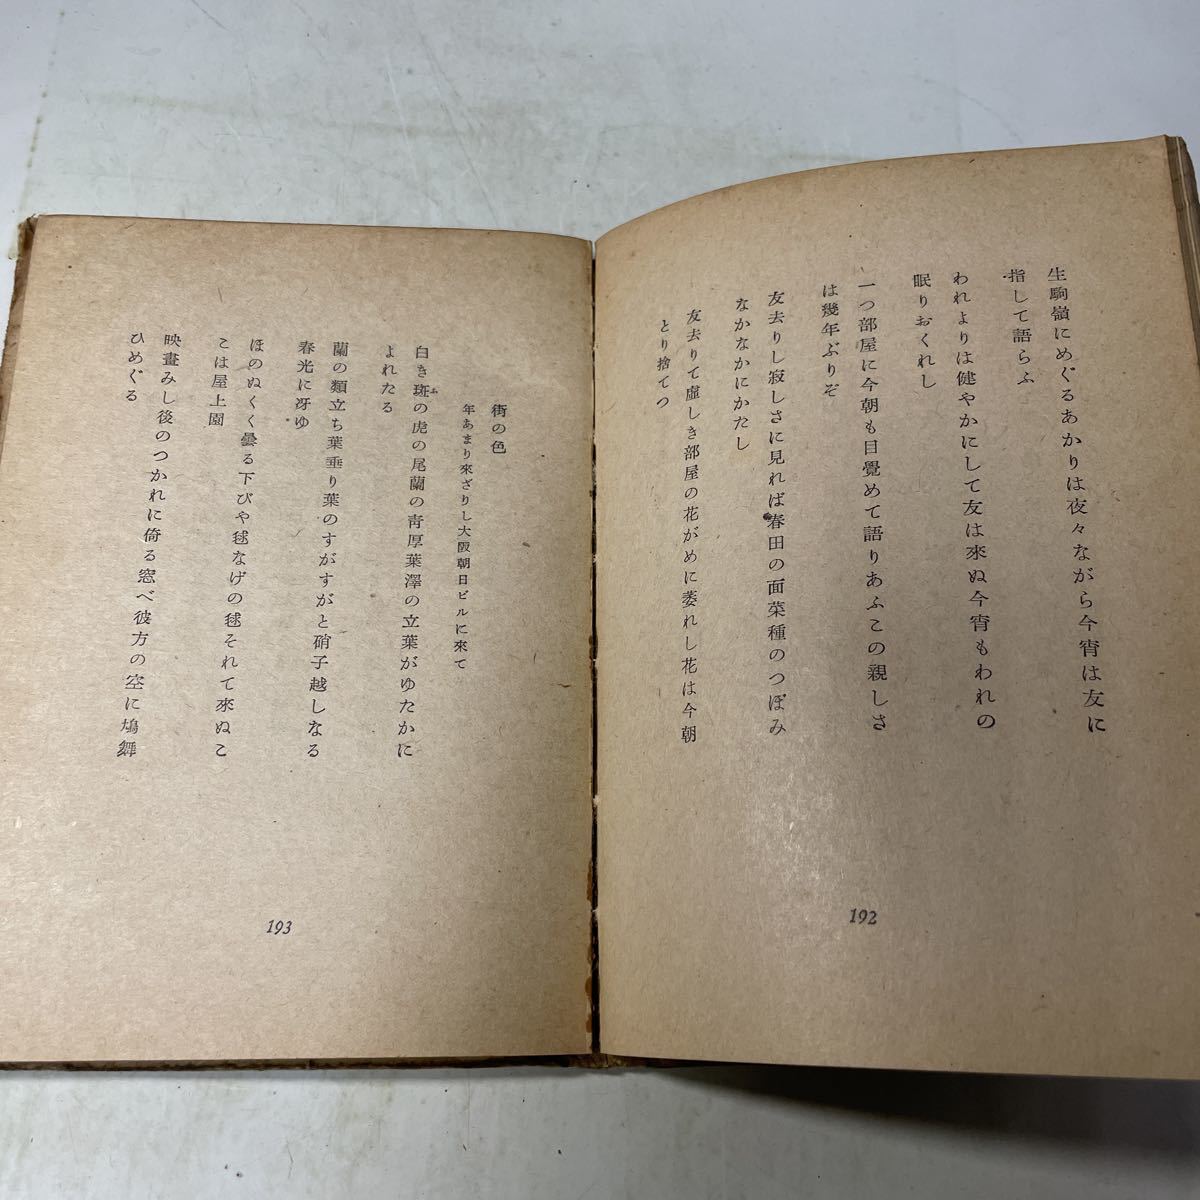 生駒嶺にめぐるあかりは夜々ながら今宵は友に
指して語らふ
われよりは健やかにして友は來ぬ今宵もわれの
眠りおくれし
一つ部屋に今朝も目覺めて語りあふこの親しさ
は幾年ぶりぞ
友去りし寂しさに見れば春田の面菜種のつぼみ
なかなかにかたし
友去りて虛しき部屋の花がめに萎れし花は今朝
とり捨てつ
192
街の色
年あまり來ざりし大阪朝日ビルに來て
白き斑の虎の尾蘭の靑厚葉澤の立葉がゆたかに
ふ
よれたる
蘭の類立ち葉垂り葉のすがすがと硝子越しなる
春光に冴ゆ
ほのぬくく曇る下びや毬なげの毬それて來ぬこ
こは屋上園
映畫みし後のつかれに倚る窓べ彼方の空に鳩舞
ひめぐる
193